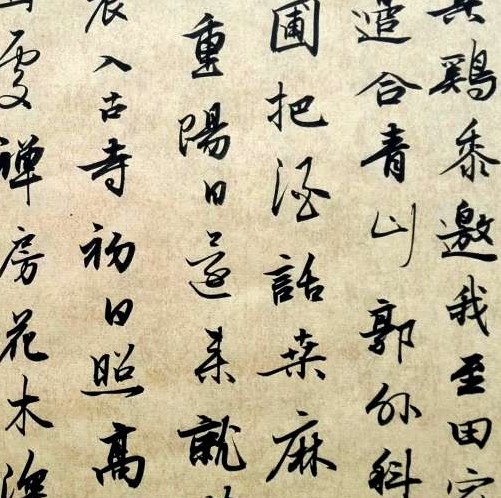 具鷄黍邀我至田家
邊合青山郭外斜
圃把酒話桑麻
重陽日還来就
晨入古寺初日照高
處禪房花木深